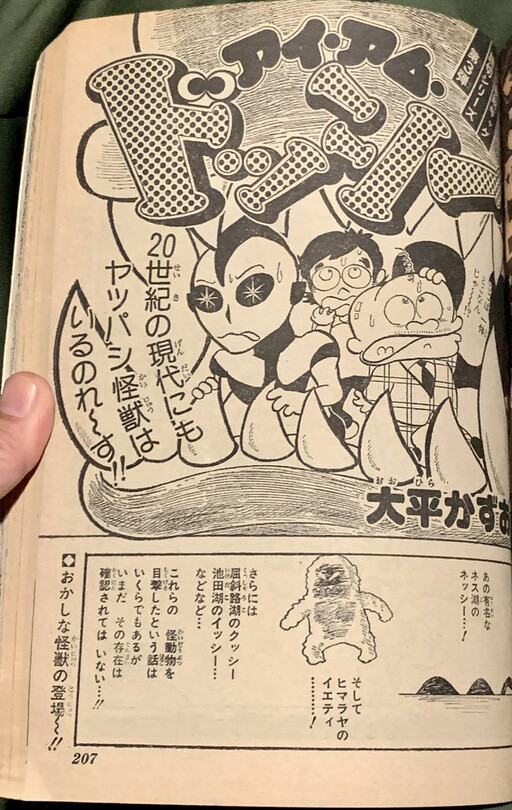 アイ・アム・
ドッコイ
20世紀の現代にも
ヤッパシ怪獣は
いるのれ〜す!!
大平かずお
あの有名な
ネス湖の
ネッシー…!
そして
ヒマラヤの
イエティ
…………!
さらには
屈斜路湖のクッシー
池田湖のイッシー…
などなど…
これらの 怪動物を
目撃したという話は
いくらでもあるが
いまだ その存在は
確認されては いない…!!
◆おかしな怪獣の登場〜!!
207